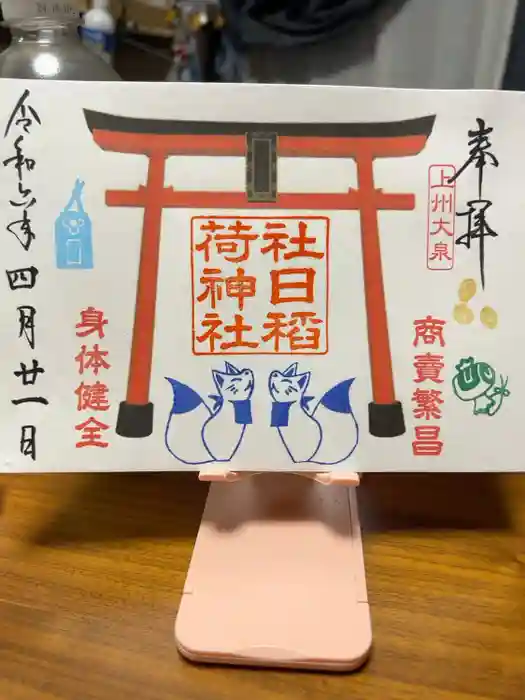 奉拝
上州大泉
商賣繁昌
社日稲
荷神社
身体健全
令和六年四月廿一日